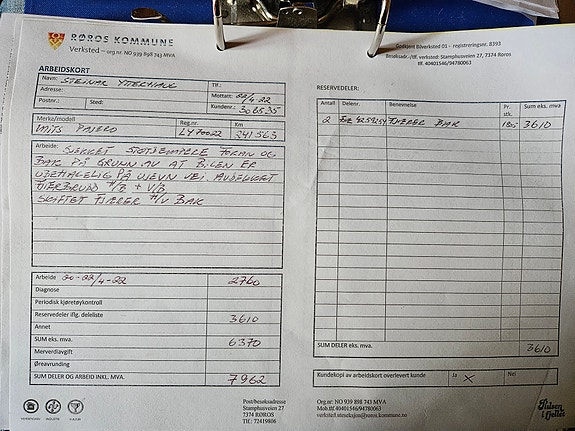 RØROS KOMMUNE
Verksted – org.nr. NO 939 898 743 MVA
ARBEIDSKORT
Navn: STEINAR YTTERHAUG
Tlf.:
Adresse:
Mottatt: 22/4-22
Postnr.:
Sted:
Kundenr.: 308535
Merke/modell
Reg.nr.
Km
MITS PAJERO
LY70022
241563
Arbeide: SJEKKET STØTDEMPERE FORAN OG
BAK PÅ GRUNN AV AT BILEN ER
UBEHAGELIG PÅ UJEVN VEI. AVDEKKET
FJÆRBRUDD H/B + V/B
SKIFTET FJÆRER H/V BAK
Arbeide 20-22/4-22 2760
Diagnose
Periodisk kjøretøykontroll
Reservedeler iflg. deleliste 3610
Annet
SUM eks. mva. 6370
Merverdiavgift
Øreavrunding
SUM DELER OG ARBEID INKL. MVA. 7962
Post/besøksadresse
Stamphusveien 27
7374 RØROS
Tlf.: 72419806
Godkjent Bilverksted 01 - registreringsnr. 8393
Besøksadr./tlf. verksted: Stamphusveien 27, 7374 Røros
tlf. 40401546/94780063
RESERVEDELER:
Antall
Delenr.
Benevnelse
Pr. stk.
Sum eks. mva
2 4259254 FJÆRER BAK 1805 3610
SUM DELER eks. mva. 3610
Kundekopi av arbeidskort overlevert kunde
Ja X
Nei
Org.nr: NO 939 898 743 MVA
Mob.tlf.40401546/94780063
verksted.uteseksjon@roros.kommune.no
Pulsen
i fjellet